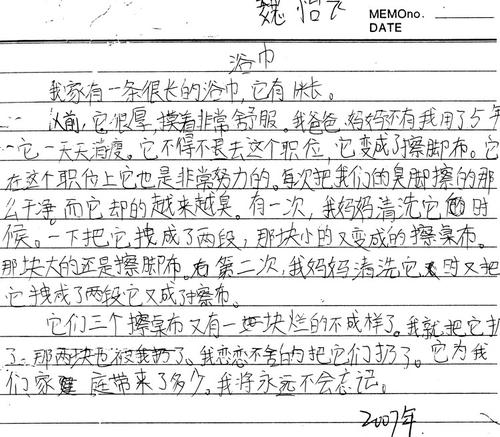 魏怡
MEMOno.
DATE
浴巾
我家有一条很长的浴巾,它有1米长。
以前,它很厚,摸着非常舒服。我爸爸、妈妈还有我用了5年
它一天天消瘦。它不得不退去这个职位,它变成了擦脚布。它
在这个职位上它也是非常努力的。每次把我们的臭脚擦的那
么干净。而它却的越来越臭。有一次,我妈妈清洗它的时
候。一下把它拽成了两段,那块小的又变成的擦桌布。
那块大的还是擦脚布。第二次,我妈妈清洗它时又把
它拽成了两段它又成了擦布。
它们三个擦桌布又有一块烂的不成样了。我就把它扔
了。那两块也被我扔了。我恋恋不舍的把它们扔了。它为我
们家庭带来了多少。我将永远不会忘记。
2007年